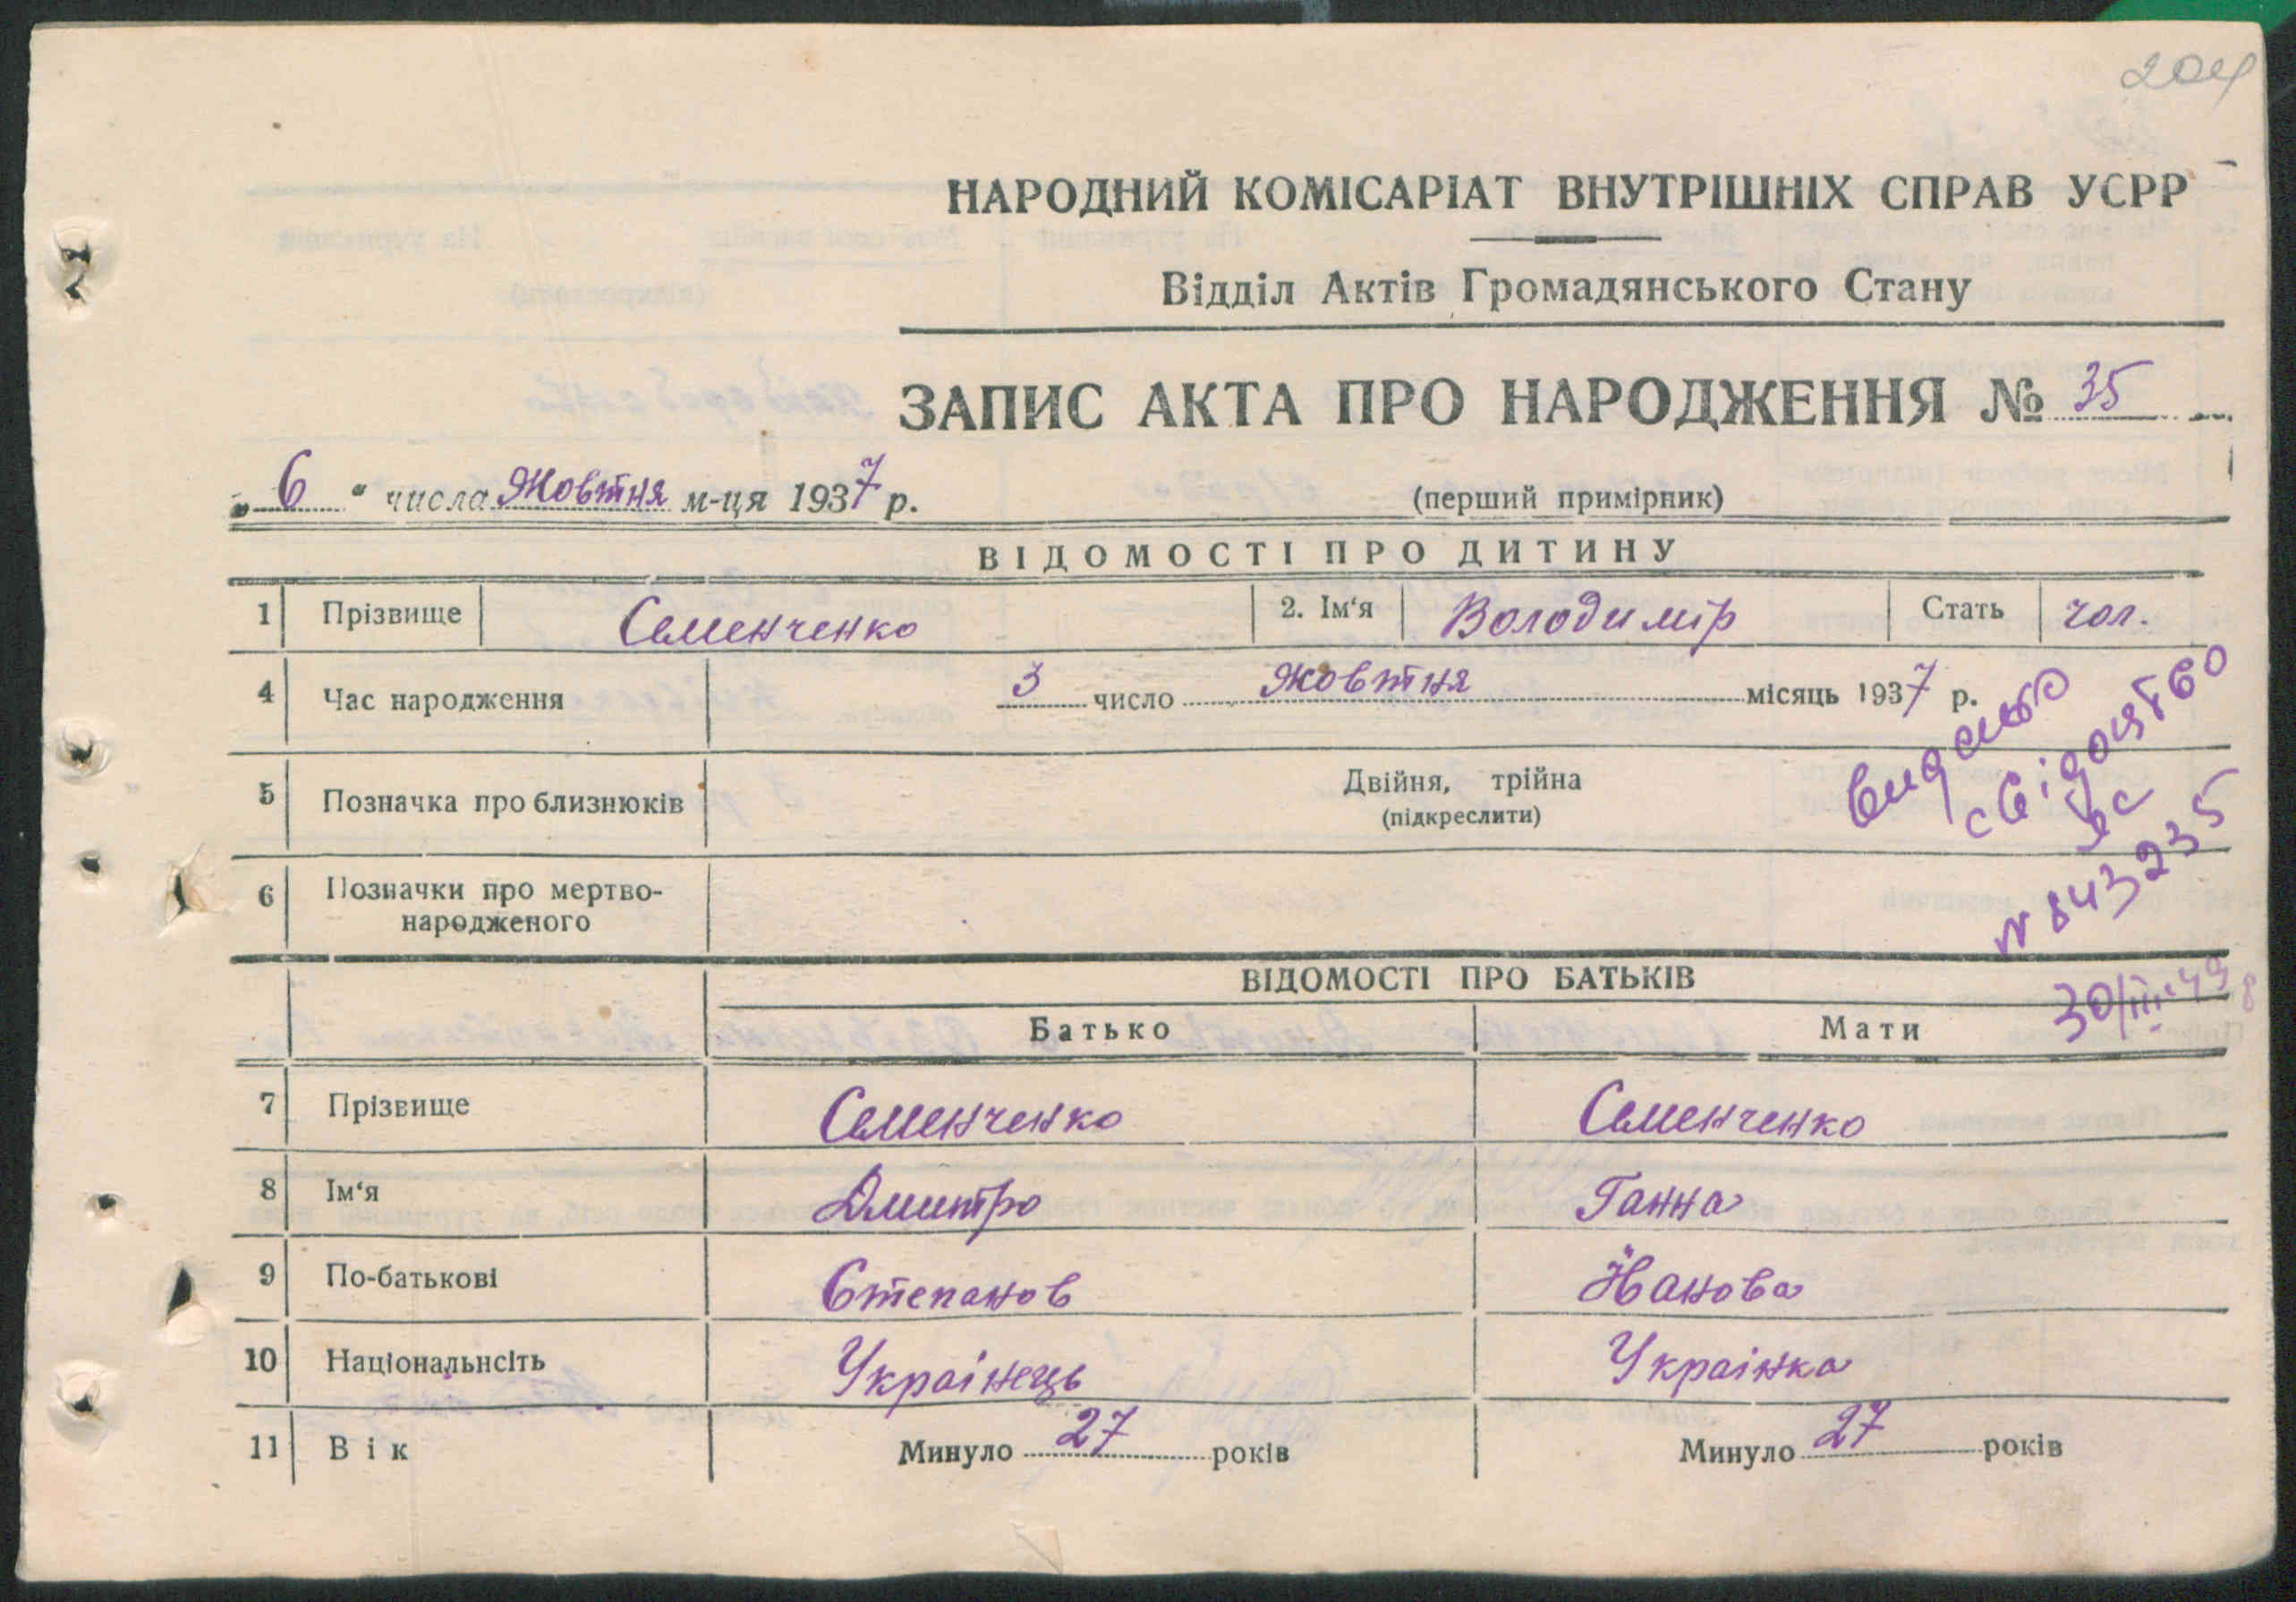 204
НАРОДНИЙ КОМІСАРІАТ ВНУТРІШНІХ СПРАВ УСРР
Відділ Актів Громадянського Стану
ЗАПИС АКТА ПРО НАРОДЖЕННЯ № 35
„ 6 “ числа Жовтня м-ця 1937 р.
(перший примірник)
ВІДОМОСТІ ПРО ДИТИНУ
1 Прізвище Семенченко 2. Ім‘я Володимір Стать чол.
4 Час народження 3 число Жовтня місяць 1937 р.
5 Позначка про близнюків Двійня, трійна
(підкреслити)
6 Позначки про мертво-
народженого
видано
свідоцтво
№ 843235
30/III
ВІДОМОСТІ ПРО БАТЬКІВ
Батько Мати
7 Прізвище Семенченко Семенченко
8 Ім‘я Дмитро Ганна
9 По-батькові Степанов Йванова
10 Національнсіть Украінець Украінка
11 Вік Минуло 27 років Минуло 27 років